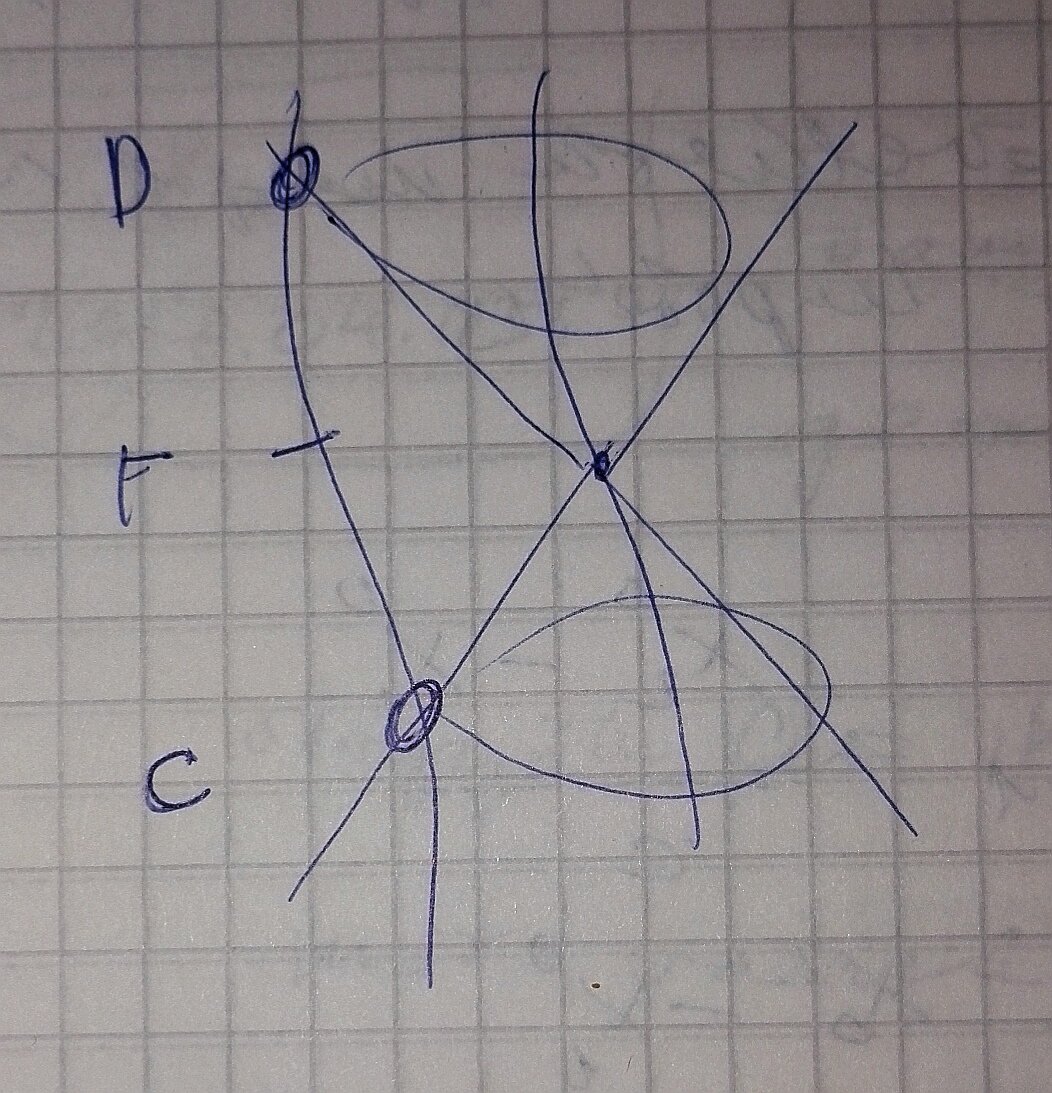 D
F
C